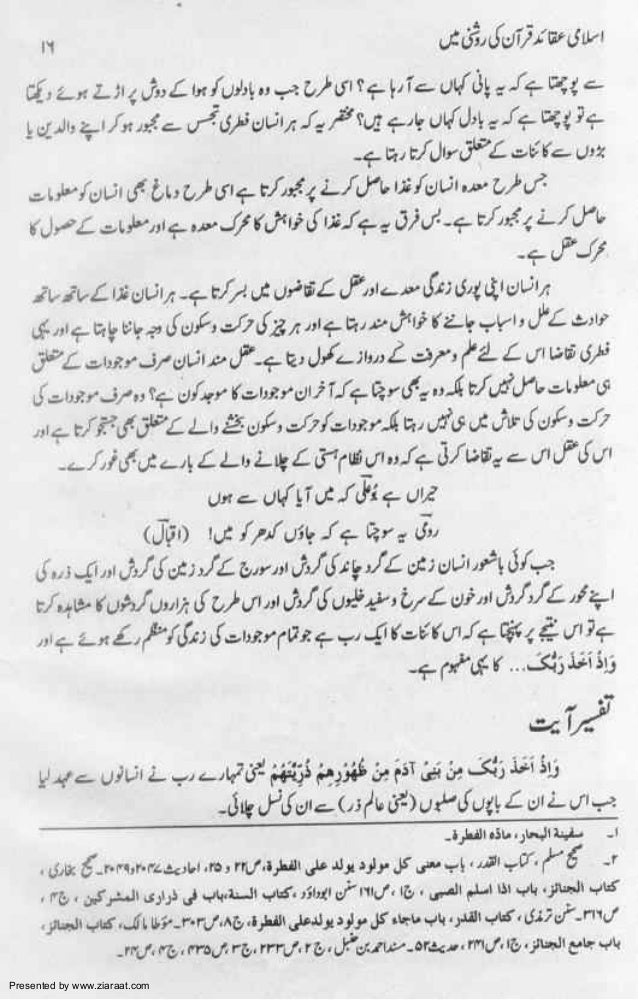 اسلامی عقائد قرآن کی روشنی میں
۱۶
سے پوچھتا ہے کہ یہ پانی کہاں سے آ رہا ہے؟ اسی طرح جب وہ بادلوں کو ہوا کے دوش پر اڑتے ہوئے دیکھتا
ہے تو پوچھتا ہے کہ یہ بادل کہاں جا رہے ہیں؟ مختصر یہ کہ ہر انسان فطری تجسس سے مجبور ہو کر اپنے والدین یا
بڑوں سے کائنات کے متعلق سوال کرتا رہتا ہے۔
جس طرح معدہ انسان کو غذا حاصل کرنے پر مجبور کرتا ہے اسی طرح دماغ بھی انسان کو معلومات
حاصل کرنے پر مجبور کرتا ہے۔ بس فرق یہ ہے کہ غذا کی خواہش کا محرک معدہ ہے اور معلومات کے حصول کا
محرک عقل ہے۔
ہر انسان اپنی پوری زندگی معدے اور عقل کے تقاضوں میں بسر کرتا ہے۔ ہر انسان غذا کے ساتھ ساتھ
حوادث کے علل و اسباب جاننے کا خواہش مند رہتا ہے اور ہر چیز کی حرکت و سکون کی وجہ جاننا چاہتا ہے اور یہی
فطری تقاضا اس کے لئے علم و معرفت کے دروازے کھول دیتا ہے۔ عقل مند انسان صرف موجودات کے متعلق
ہی معلومات حاصل نہیں کرتا بلکہ وہ یہ بھی سوچتا ہے کہ آخر ان موجودات کا موجد کون ہے؟ وہ صرف موجودات کی
حرکت و سکون کی تلاش میں ہی نہیں رہتا بلکہ موجودات کو حرکت و سکون بخشنے والے کے متعلق بھی جستجو کرتا ہے اور
اس کی عقل اس سے یہ تقاضا کرتی ہے کہ وہ اس نظام ہستی کے چلانے والے کے بارے میں بھی غور کرے۔
حیراں ہے بُوعلی کہ میں آیا کہاں سے ہوں
رومی یہ سوچتا ہے کہ جاؤں کدھر کو میں! (اقبال)
جب کوئی باشعور انسان زمین کے گرد چاند کی گردش اور سورج کے گرد زمین کی گردش اور ایک ذرہ کی
اپنے محور کے گرد گردش اور خون کے سرخ و سفید خلیوں کی گردش اور اس طرح کی ہزاروں گردشوں کا مشاہدہ کرتا
ہے تو اس نتیجے پر پہنچتا ہے کہ اس کائنات کا ایک رب ہے جو تمام موجودات کی زندگی کو منظم رکھے ہوئے ہے اور
وَاِذْ اَخَذَ رَبُّکَ... کا یہی مفہوم ہے۔
تفسیر آیت
وَاِذْ اَخَذَ رَبُّکَ مِنْ بَنِیْ آدَمَ مِنْ ظُهُوْرِهِمْ ذُرِّيَّتَهُمْ یعنی تمہارے رب نے انسانوں سے عہد لیا
جب اس نے ان کے باپوں کی صلبوں (یعنی عالم ذر) سے ان کی نسل چلائی۔
۱۔ سفینة البحار، مادّہ الفطرة۔
۲۔ صحیح مسلم، کتاب القدر، باب معنی کل مولود یولد علی الفطرة، ص۲۲ و ۲۵، احادیث ۲۰۴۷ و ۲۰۴۹۔ صحیح بخاری،
کتاب الجنائز، باب اذا اسلم الصبی، ج۱، ص۱۶۱ سنن ابوداؤد، کتاب السنة، باب فی ذراری المشرکین، ج۴،
ص۳۱۶۔ سنن ترمذی، کتاب القدر، باب ماجاء کل مولود یولد علی الفطرة، ج۸، ص۳۰۳۔ مؤطا مالک، کتاب الجنائز،
باب جامع الجنائز، ج۱، ص۲۴۱، حدیث ۵۲۔ مسند احمد بن حنبل، ج۲، ص۲۳۳، ج۳، ص۴۳۵، ج۴، ص۲۴۔
Presented by www.ziaraat.com